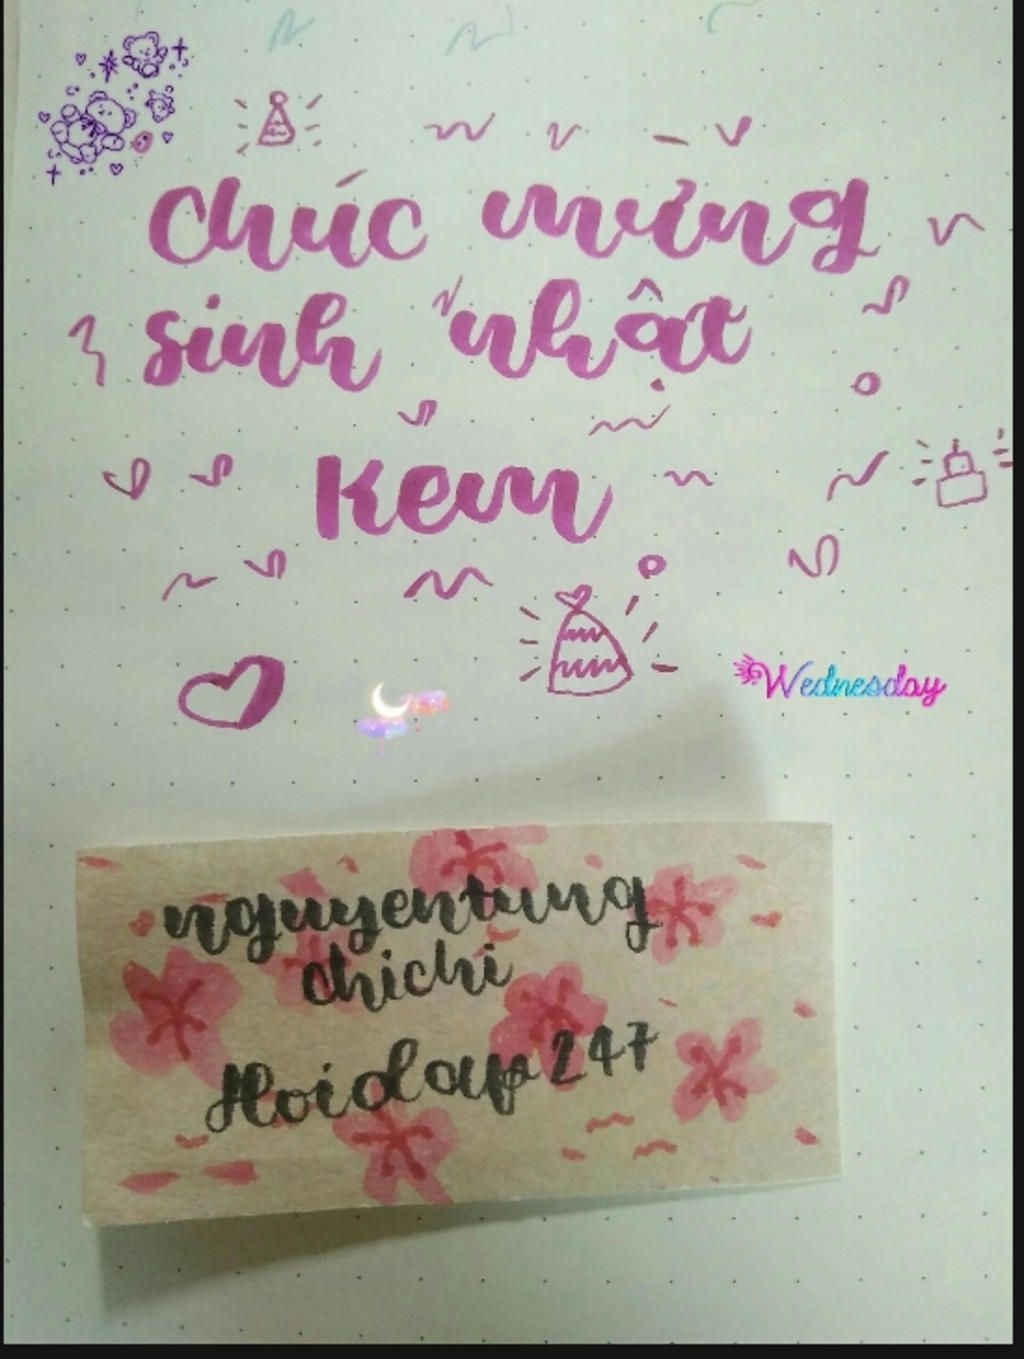 chúc mừng
sinh nhật
Kem
Wednesday
nguyentung
chichi
Hoidap247